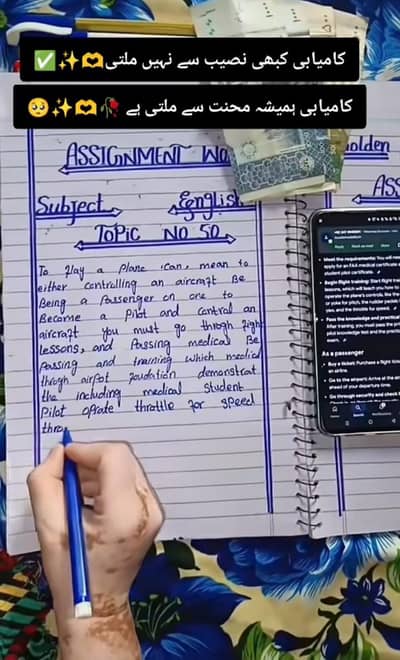 کامیابی کبھی نصیب سے نہیں ملتی🫶✨✅
کامیابی ہمیشہ محنت سے ملتی ہے 🥀🫶✨🥺
ASSIGNMENT WO
Subject
English
TOPIC NO 50
To Flay a Plane Can, mean to
either Contralling an aircraft Be
Being a Passenger on one to
Become a Pilot and Contral an
aircraft you must go throgh
lessons, and Passing medical Be
Passing and training which medical
throgh airpot foudation demonstrat
the including medical Student
Pilot oprate throttle for speed
thro
olden
ASS
Meet the requirements: You will nee
apply for an FAA medical certificate
student pilot certificate.
Begin flight training: Start flight trai
lessons, which will teach you how to
operate the plane's controls, like the
or yoke for pitch, the rudder pedals
yaw, and the throttle for speed.
Pass the knowledge and practical
After training, you must pass the
pilot knowledge test and the practica
exam.
As a passenger
Buy a ticket: Purchase a flight ticke
an airline.
Go to the airport: Arrive at the air
ahead of your departure time.
Go through security and check
Home
Search